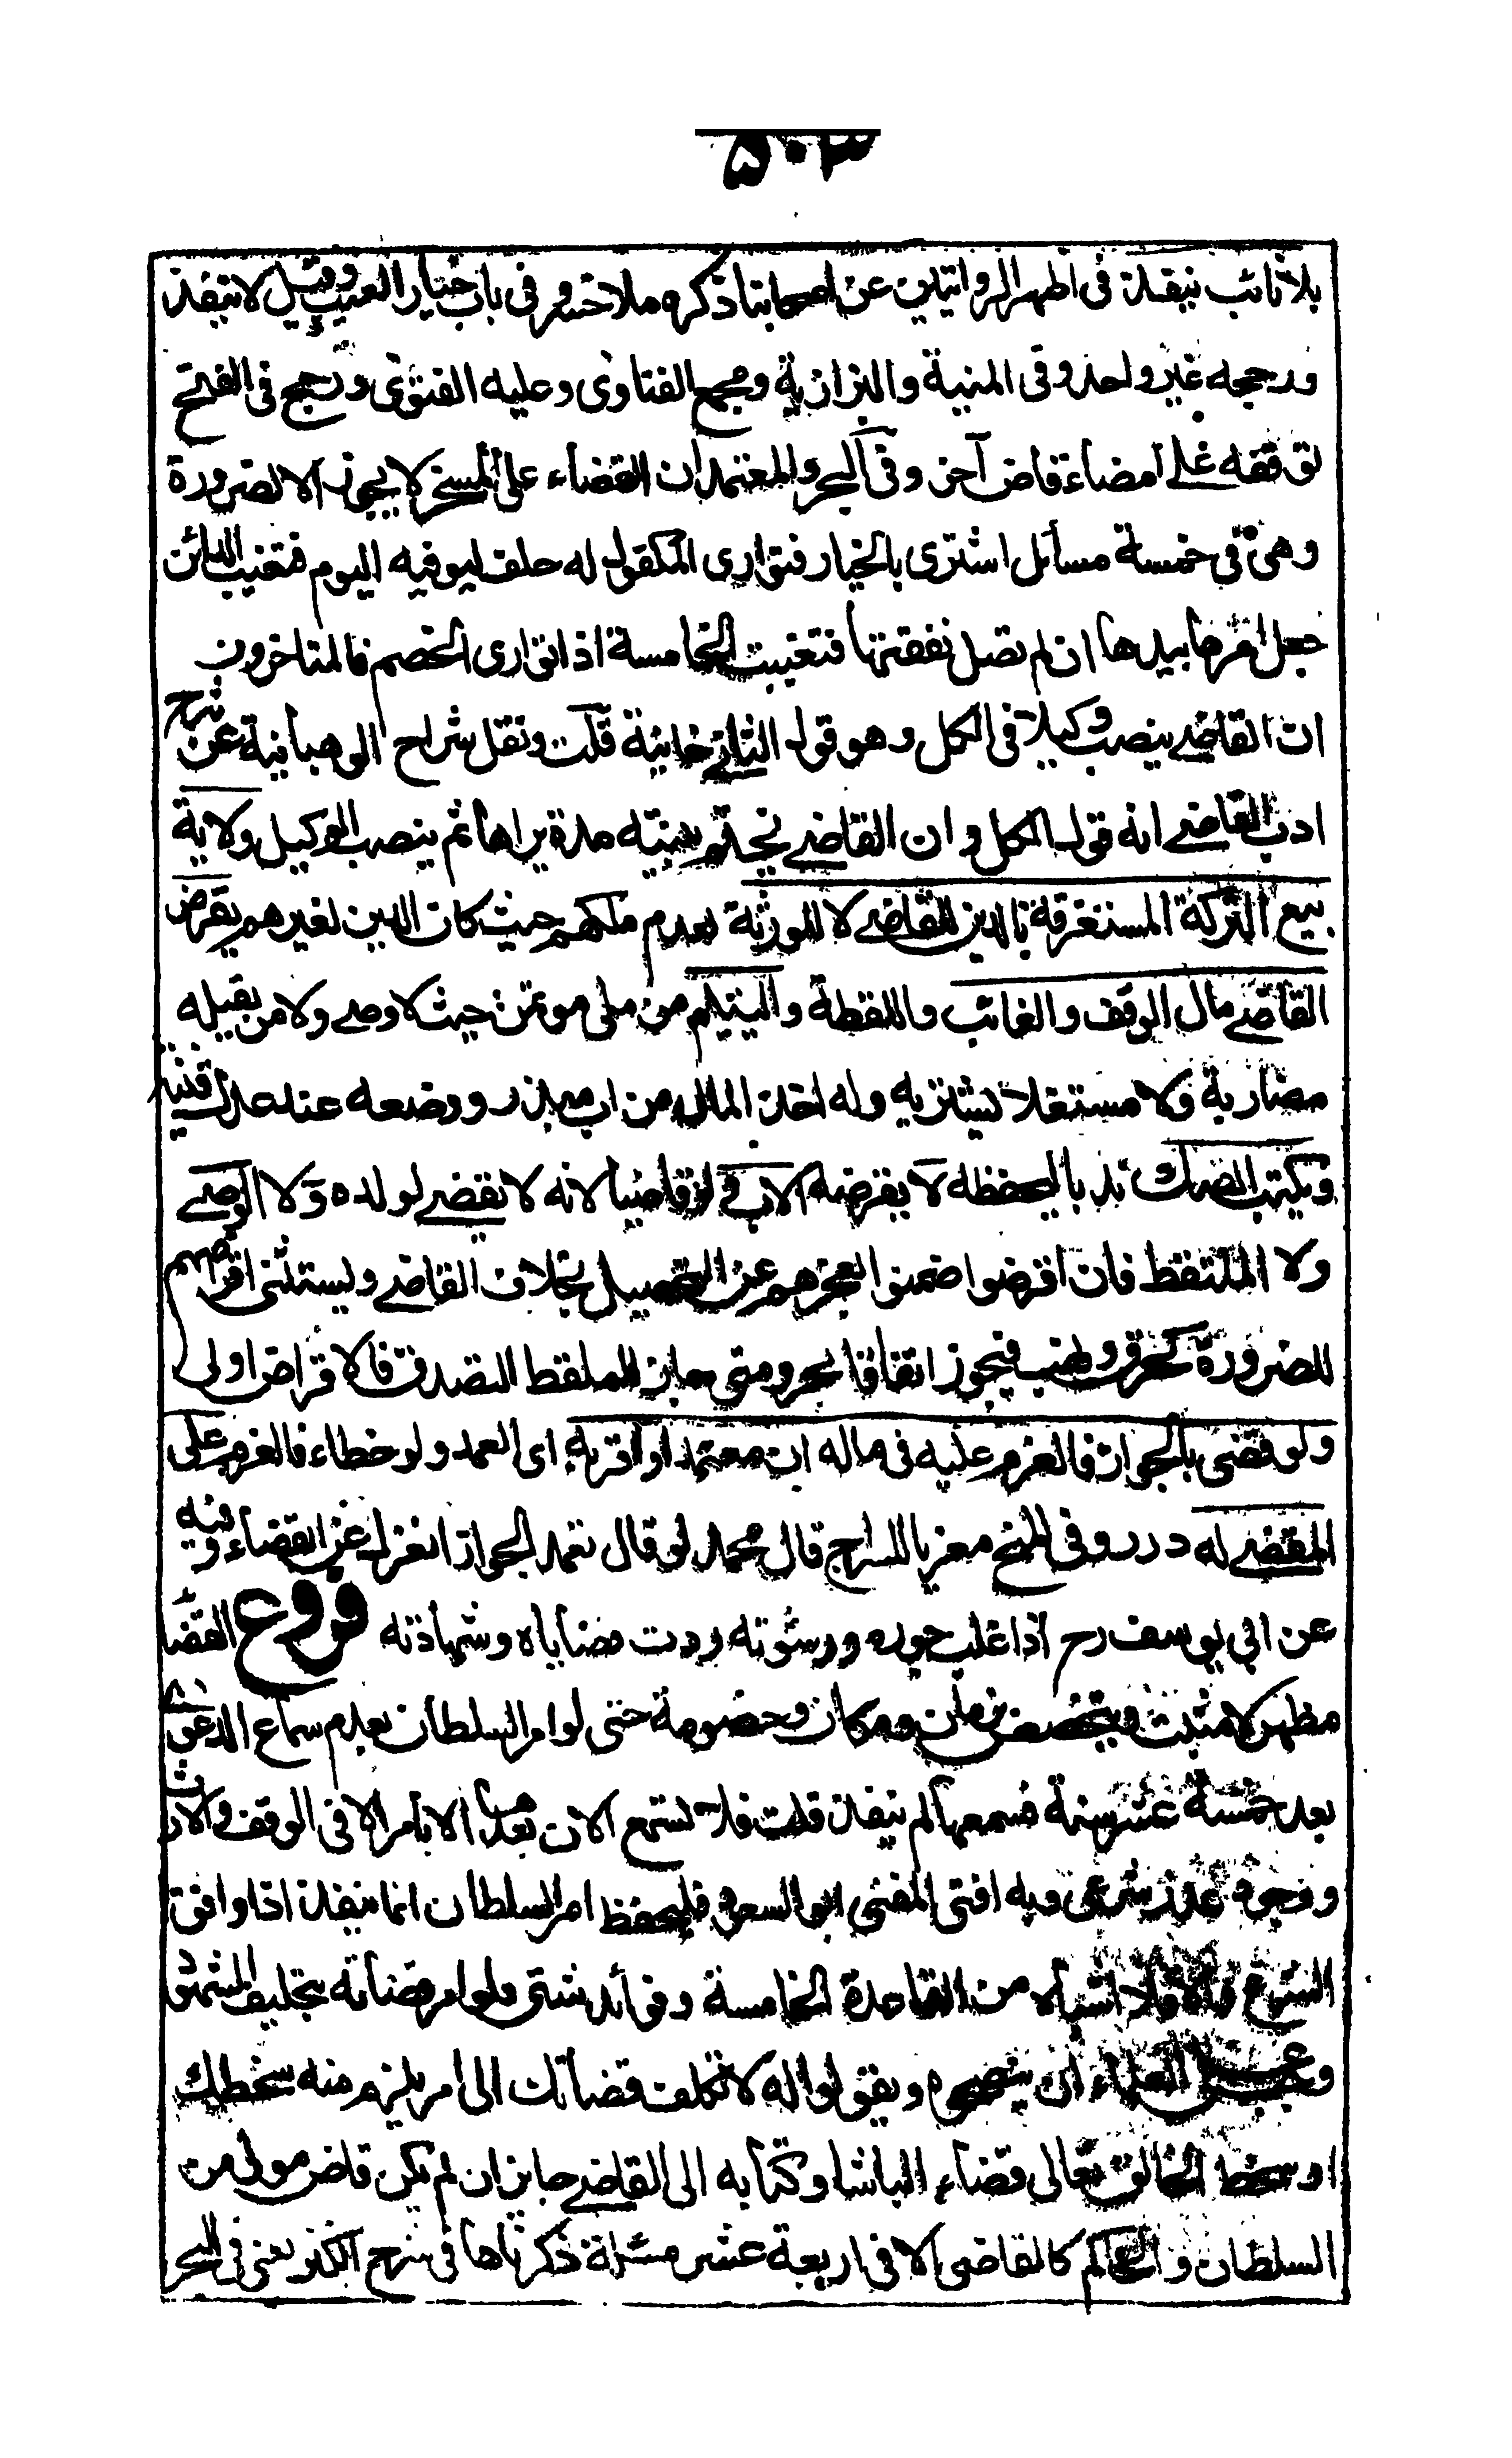 ٥٠٣
بلا نائب ينفذ فى اظهر الروايتين عن اصحابنا ذكره ملا خسرو فى باب خيار العيب وقيل لا ينفذ
ورجحه غير واحد وفى المنية والبزازية ومجمع الفتاوى وعليه الفتوى ورجح فى الفتح
توقفه على امضاء قاض آخر وفى البحر والمعتمد ان القضاء على المسخر لا يجوز الا لضرورة
وهى فى خمسة مسائل اشترى بالخيار فتوارى المكفول له حلف ليوفيه اليوم فتغيب الدائن
جعل امرها بيدها ان لم تصل نفقتها فتغيبت الخامسة اذا توارى الخصم فالمتاخرون
ان القاضى ينصب وكيلا فى الكل وهو قول الثانى خانية قلت ونقل شراح الوهبانية عن شرح
ادب القاضى انه قول الكل وان القاضى يختم بيته مدة يراها ثم ينصب الوكيل ولاية
بيع التركة المستغرقة بالدين للقاضى لا للورثة لعدم ملكهم حيث كان الدين لغيرهم يقرض
القاضى مال الوقف والغائب واللقطة واليتيم من ملى موتمن حيث لا وصى ولا من يقبله
مضاربة ولا مستغلا يشتريه وله اخذ المال من اب مبذر ووضعه عند عدل قنيه
ويكتب الصك ندبا ليحفظه لا يقرضه الاب ولو قاضيا لانه لا يقضى لولده ولا الوصى
ولا الملتقط فان اقرضوا ضمنوا لعجزهم عن التحصيل بخلاف القاضى ويستثنى اقراضهم
للضرورة كحرق ونهب فيجوز اتفاقا بحر ومتى جاز للملتقط التصدق فالاقراض اولى
ولو قضى بالجور فالغرم عليه فى ماله ان معتمدا واقر به اى العمد ولو خطاء فالغرم على
المقضى له درر وفى المنح معزيا للسراج قال محمد لو قال تعمد الجور انعزل عن القضاء وفيه
عن ابى يوسف رح اذا غلب جوره ورشوته ردت قضاياه وشهادته فروع القضا
مظهر لا مثبت ويتخصص بزمان ومكان وخصومة حتى لو امر السلطان بعدم سماع الدعوى
بعد خمسة عشر سنة فسمعها لم ينفذ قلت فلا تسمع الان بعدها الا بامر الا فى الوقف والارث
ووجود عذر شرعى وبه افتى المفتى ابو السعود فليحفظ امر السلطان انما ينفذ اذا وافق
الشرع والا فلا اشباه من القاعدة الخامسة وفوائد شتى فلو امر قضاته بتحليف الشهود
وجب على العلماء ان ينصحوه ويقولوا له لا تكلف قضاتك الى امر يلزم منه سخطك
او سخط الخالق تعالى قضاء الباشا وكتابه الى القاضى جايز ان لم يكن قاض مولى من
السلطان والحاكم كالقاضى الا فى اربعة عشر مسئلة ذكرناها فى شرح الكنز يعنى فى البحر